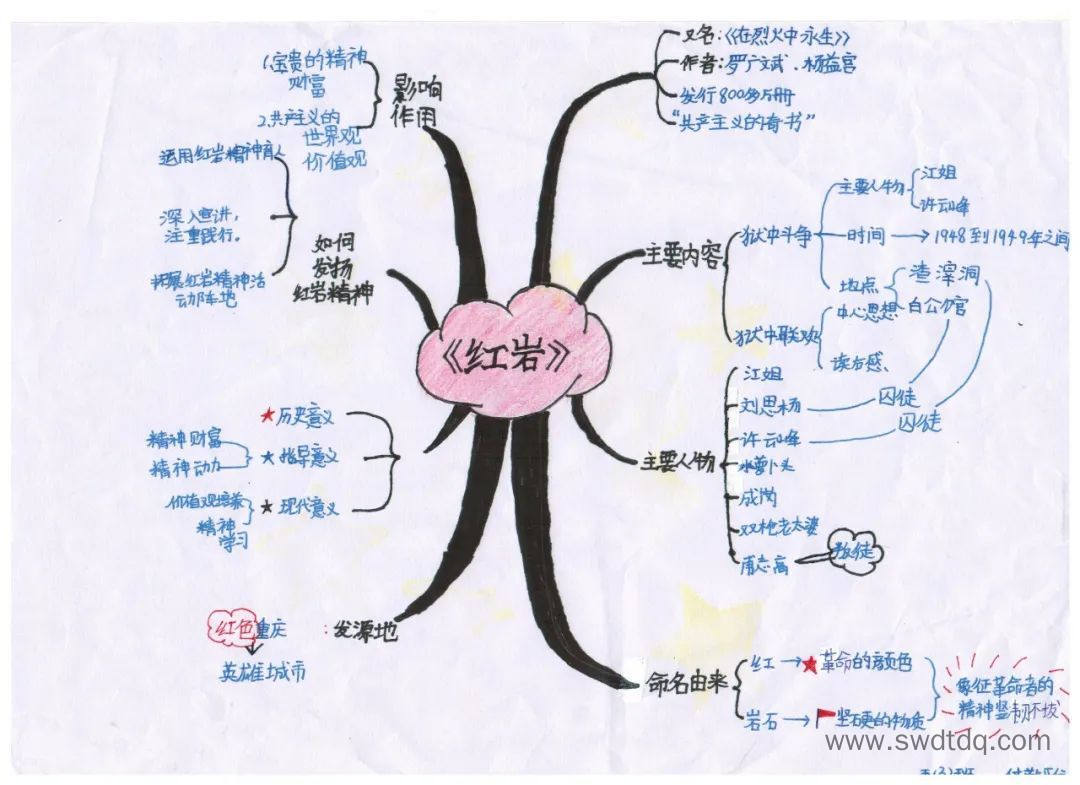 《红岩》
又名:《在烈火中永生》
作者:罗广斌、杨益言
发行800多万册
“共产主义的奇书”
主要内容
狱中斗争
主要人物
江姐
许云峰
时间
1948到1949年之间
地点
渣滓洞
白公馆
狱中联欢
中心思想
读后感、
主要人物
江姐
刘思杨
囚徒
许云峰
囚徒
小萝卜头
成岗
双枪老太婆
甫志高
叛徒
命名由来
红
革命的颜色
岩石
坚硬的物质
象征革命者的
精神坚韧不拔
影响
作用
1.宝贵的精神
财富
2.共产主义的
世界观
价值观
如何
发扬
红岩精神
运用红岩精神育人
深入宣讲,
注重践行。
拓展红岩精神活
动阵地
历史意义
指导意义
精神财富
精神动力
现代意义
价值观培养
精神
学习
发源地
:
红色重庆
英雄城市
www.swdtdq.com